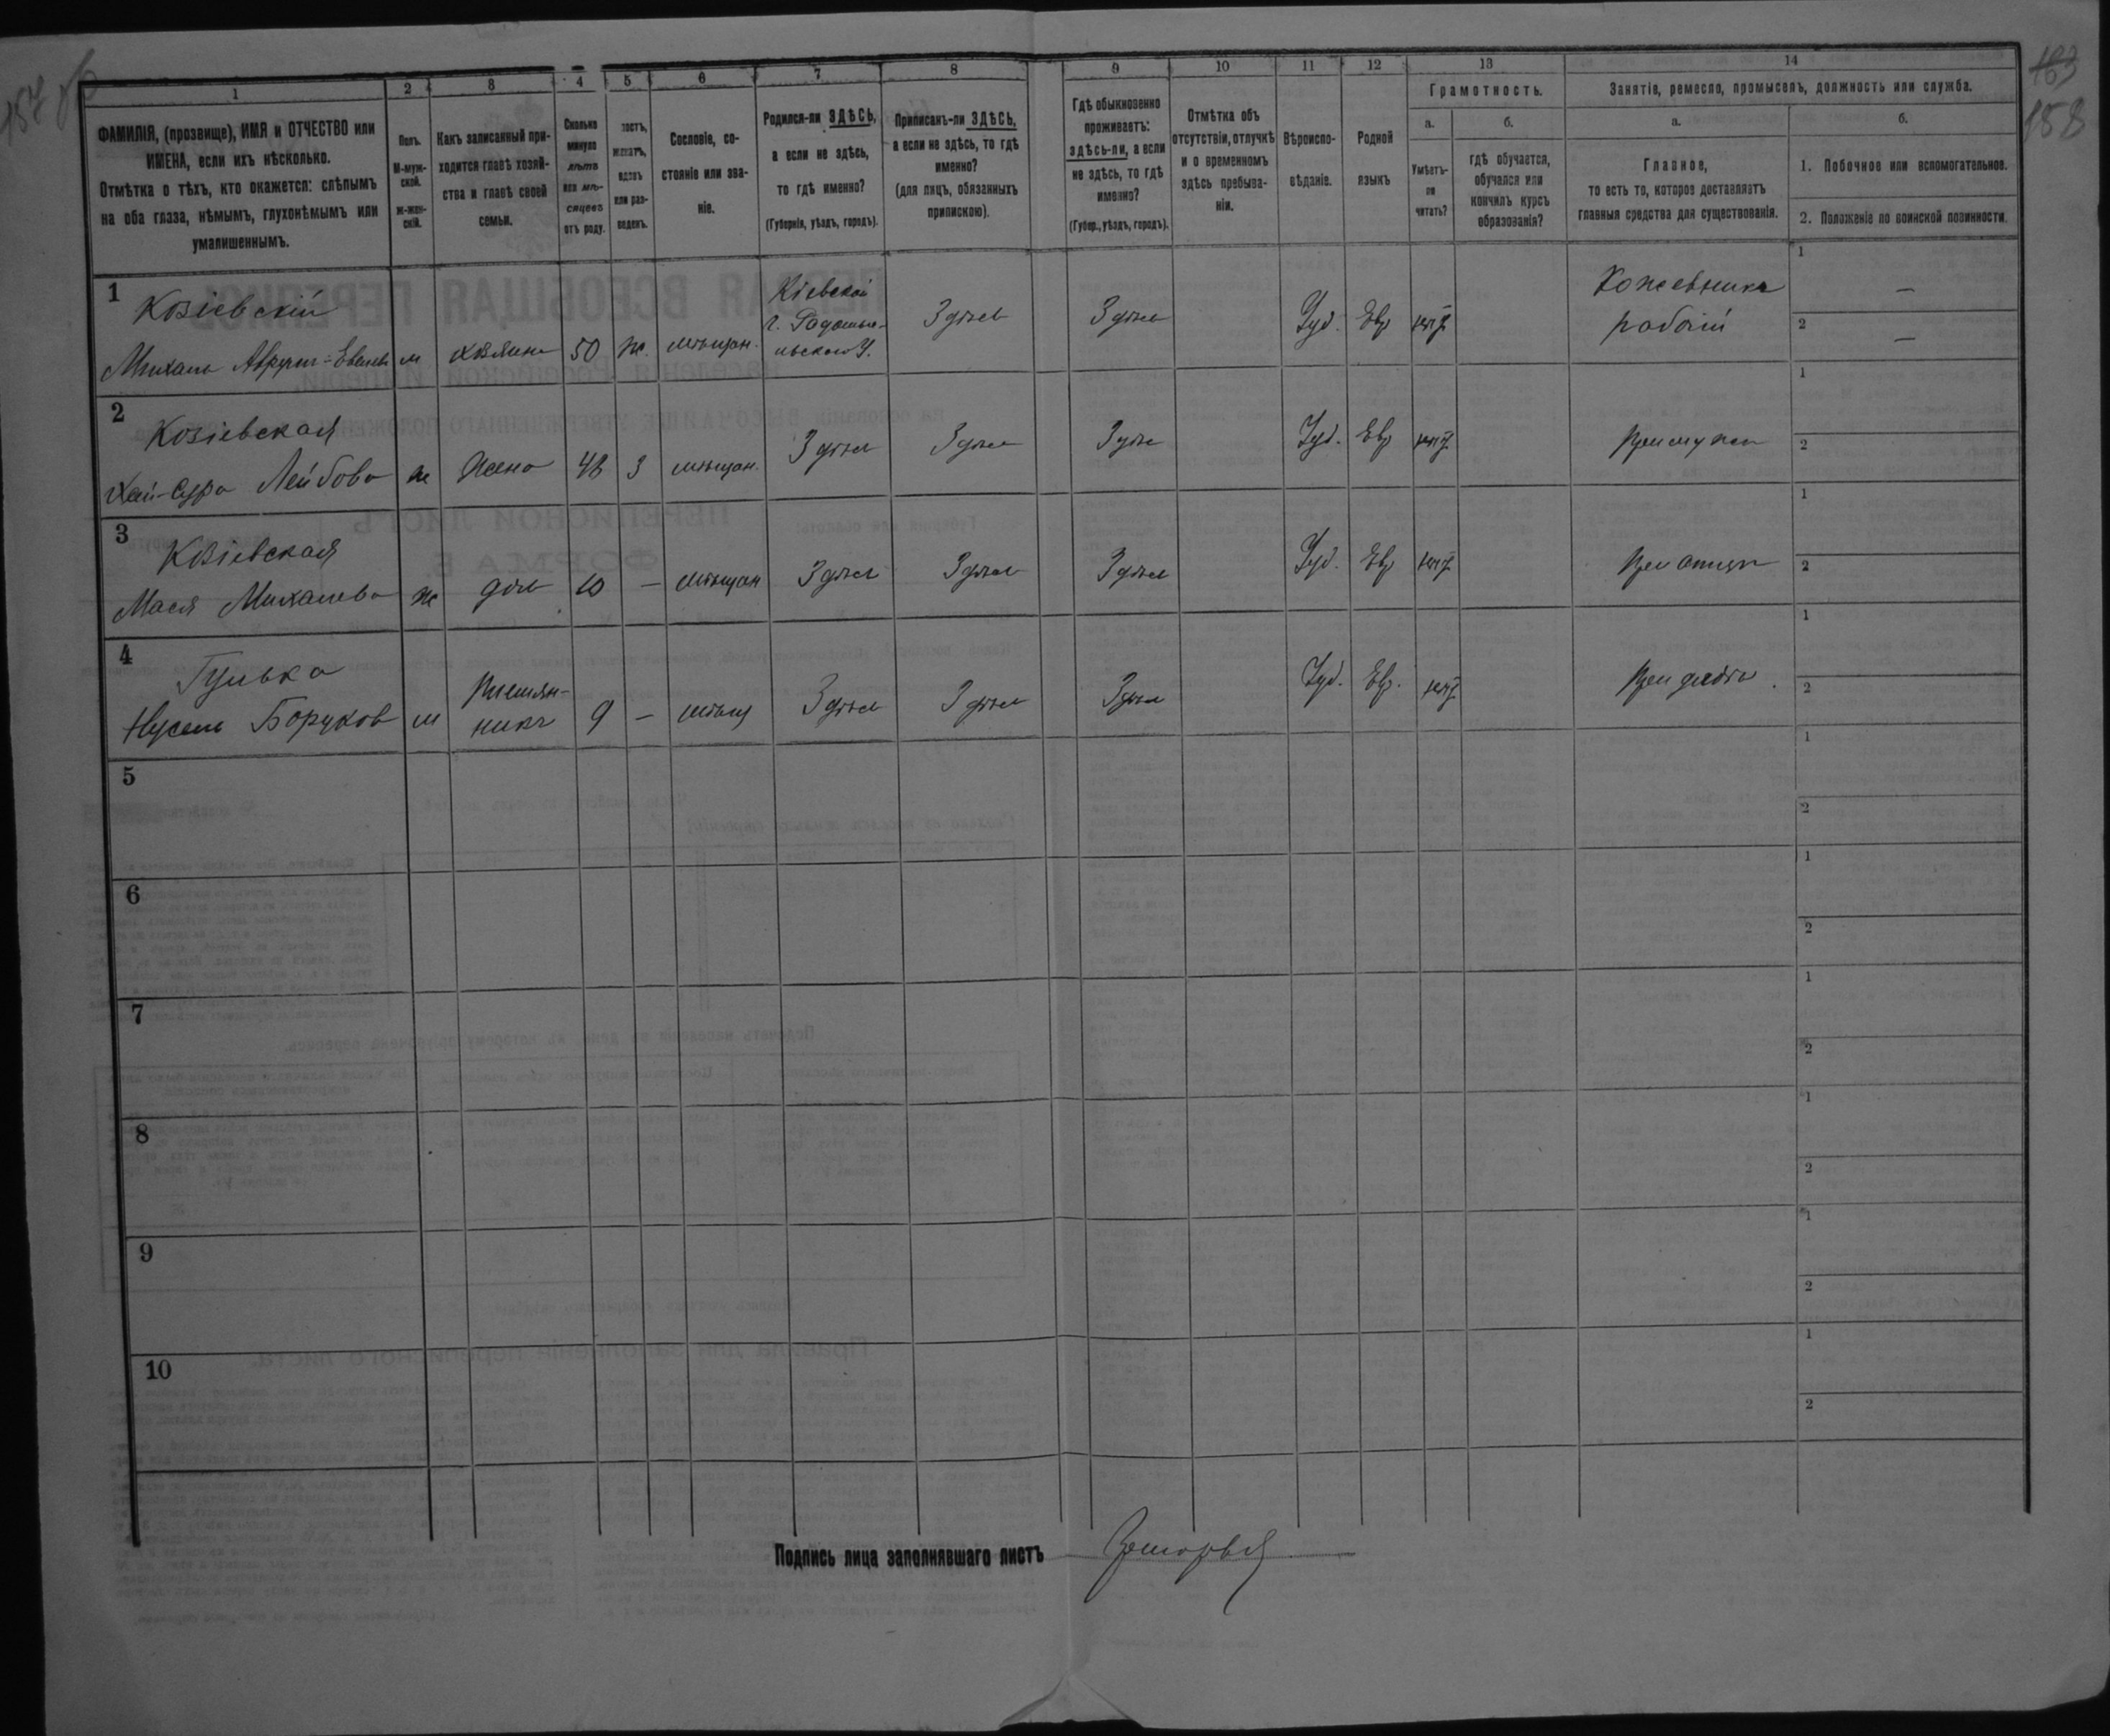 157 об
163
158
1
2
3
4
5
6
7
8
9
10
11
12
13
14
ФАМИЛІЯ, (прозвище), ИМЯ и ОТЧЕСТВО или
ИМЕНА, если ихъ нѣсколько.
Отмѣтка о тѣхъ, кто окажется: слѣпымъ
на оба глаза, нѣмымъ, глухонѣмымъ или
умалишеннымъ.
Полъ.
М-муж-
ской.
ж-жен-
скій.
Какъ записанный при-
ходится главѣ хозяй-
ства и главѣ своей
семьи.
Сколько
минуло
лѣтъ
или мѣ-
сяцевъ
отъ роду.
лостъ,
женатъ,
вдовъ
или раз-
веденъ.
Сословіе, со-
стояніе или зва-
ніе.
Родился-ли ЗДѢСЬ,
а если не здѣсь,
то гдѣ именно?
(Губернія, уѣздъ, городъ).
Приписанъ-ли ЗДѢСЬ,
а если не здѣсь, то гдѣ
именно?
(для лицъ, обязанныхъ
припискою).
Гдѣ обыкновенно
проживаетъ:
здѣсь-ли, а если
не здѣсь, то гдѣ
именно?
(Губер., уѣздъ, городъ).
Отмѣтка объ
отсутствіи, отлучкѣ
и о временномъ
здѣсь пребыва-
ніи.
Вѣроиспо-
вѣданіе.
Родной
языкъ
Грамотность.
а.
Умѣетъ-
ли
читать?
б.
гдѣ обучается,
обучался или
кончилъ курсъ
образованія?
Занятіе, ремесло, промыселъ, должность или служба.
а.
Главное,
то есть то, которое доставляетъ
главныя средства для существованія.
б.
1. Побочное или вспомогательное.
2. Положеніе по воинской повинности.
1
Козіевскій
Михаль
м
хозяинъ
50
ж.
мѣщан.
Кіевской
г. Радомы-
льскаго у.
Здѣсь
Здѣсь
Іуд.
Евр
нѣтъ
Кожевникъ
рабочій
1
—
2
—
2
Козіевская
Хая-Сура Лейбова
ж
Жена
48
З
мѣщан.
Здѣсь
Здѣсь
Здѣсь
Іуд.
Евр
нѣтъ
При мужѣ
1
2
3
Козіевская
Мася Михалева
ж
дочь
10
—
мѣщан
Здѣсь
Здѣсь
Здѣсь
Іуд.
Евр
нѣтъ
При отцѣ
1
2
4
Гулька
Нусель Боруков
м
Племян-
никъ
9
—
мѣщ
Здѣсь
Здѣсь
Здѣсь
Іуд.
Евр.
нѣтъ
При дядѣ
1
2
5
1
2
6
1
2
7
1
2
8
1
2
9
1
2
10
1
2
Подпись лица заполнявшаго листъ